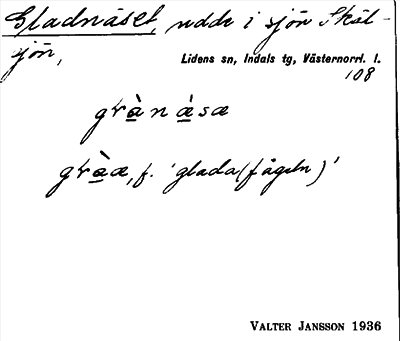 Gladnäset, udde i sjön Skäl-
sjön,
Lidens sn, Indals tg, Västernorrl. l.
108
gràn à̱sæ
grà̱æ, f. 'glada (fågeln)'
VALTER JANSSON 1936